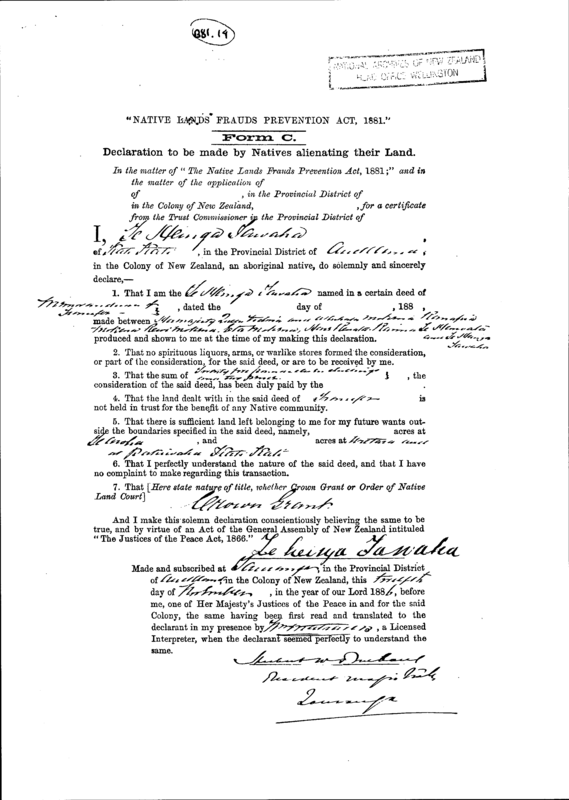 081.19
NATIONAL ARCHIVES OF NEW ZEALAND
HEAD OFFICE WELLINGTON
"NATIVE LANDS' FRAUDS PREVENTION ACT, 1881."
Form C.
Declaration to be made by Natives alienating their Land.
In the matter of "The Native Lands Frauds Prevention Act, 1881;" and in
the matter of the application of
of , in the Provincial District of
in the Colony of New Zealand, , for a certificate
from the Trust Commissioner in the Provincial District of
I, Te Heinga Tawaha ,
of Kati Kati , in the Provincial District of Auckland ,
in the Colony of New Zealand, an aboriginal native, do solemnly and sincerely
declare,—
1. That I am the Te Heinga Tawaha named in a certain deed of
Memorandum of
Transfer , dated the day of , 188 ,
made between Her Majesty Queen Victoria and
produced and shown to me at the time of my making this declaration.
and Te Heinga
Tawaha
2. That no spirituous liquors, arms, or warlike stores formed the consideration,
or part of the consideration, for the said deed, or are to be received by me.
3. That the sum of , the
consideration of the said deed, has been duly paid by the .
4. That the land dealt with in the said deed of Transfer is
not held in trust for the benefit of any Native community.
5. That there is sufficient land left belonging to me for my future wants out-
side the boundaries specified in the said deed, namely, acres at
Te Aroha , and acres at and
at Kati Kati
6. That I perfectly understand the nature of the said deed, and that I have
no complaint to make regarding this transaction.
7. That [Here state nature of title, whether Crown Grant or Order of Native
Land Court]
Crown Grant.
And I make this solemn declaration conscientiously believing the same to be
true, and by virtue of an Act of the General Assembly of New Zealand intituled
"The Justices of the Peace Act, 1866."
Te heinga Tawaha
Made and subscribed at Tauranga , in the Provincial District
of Auckland in the Colony of New Zealand, this twelfth
day of November , in the year of our Lord 1886, before
me, one of Her Majesty's Justices of the Peace in and for the said
Colony, the same having been first read and translated to the
declarant in my presence by , a Licensed
Interpreter, when the declarant seemed perfectly to understand the
same.
Herbert W Brabant
Resident Magistrate
Tauranga